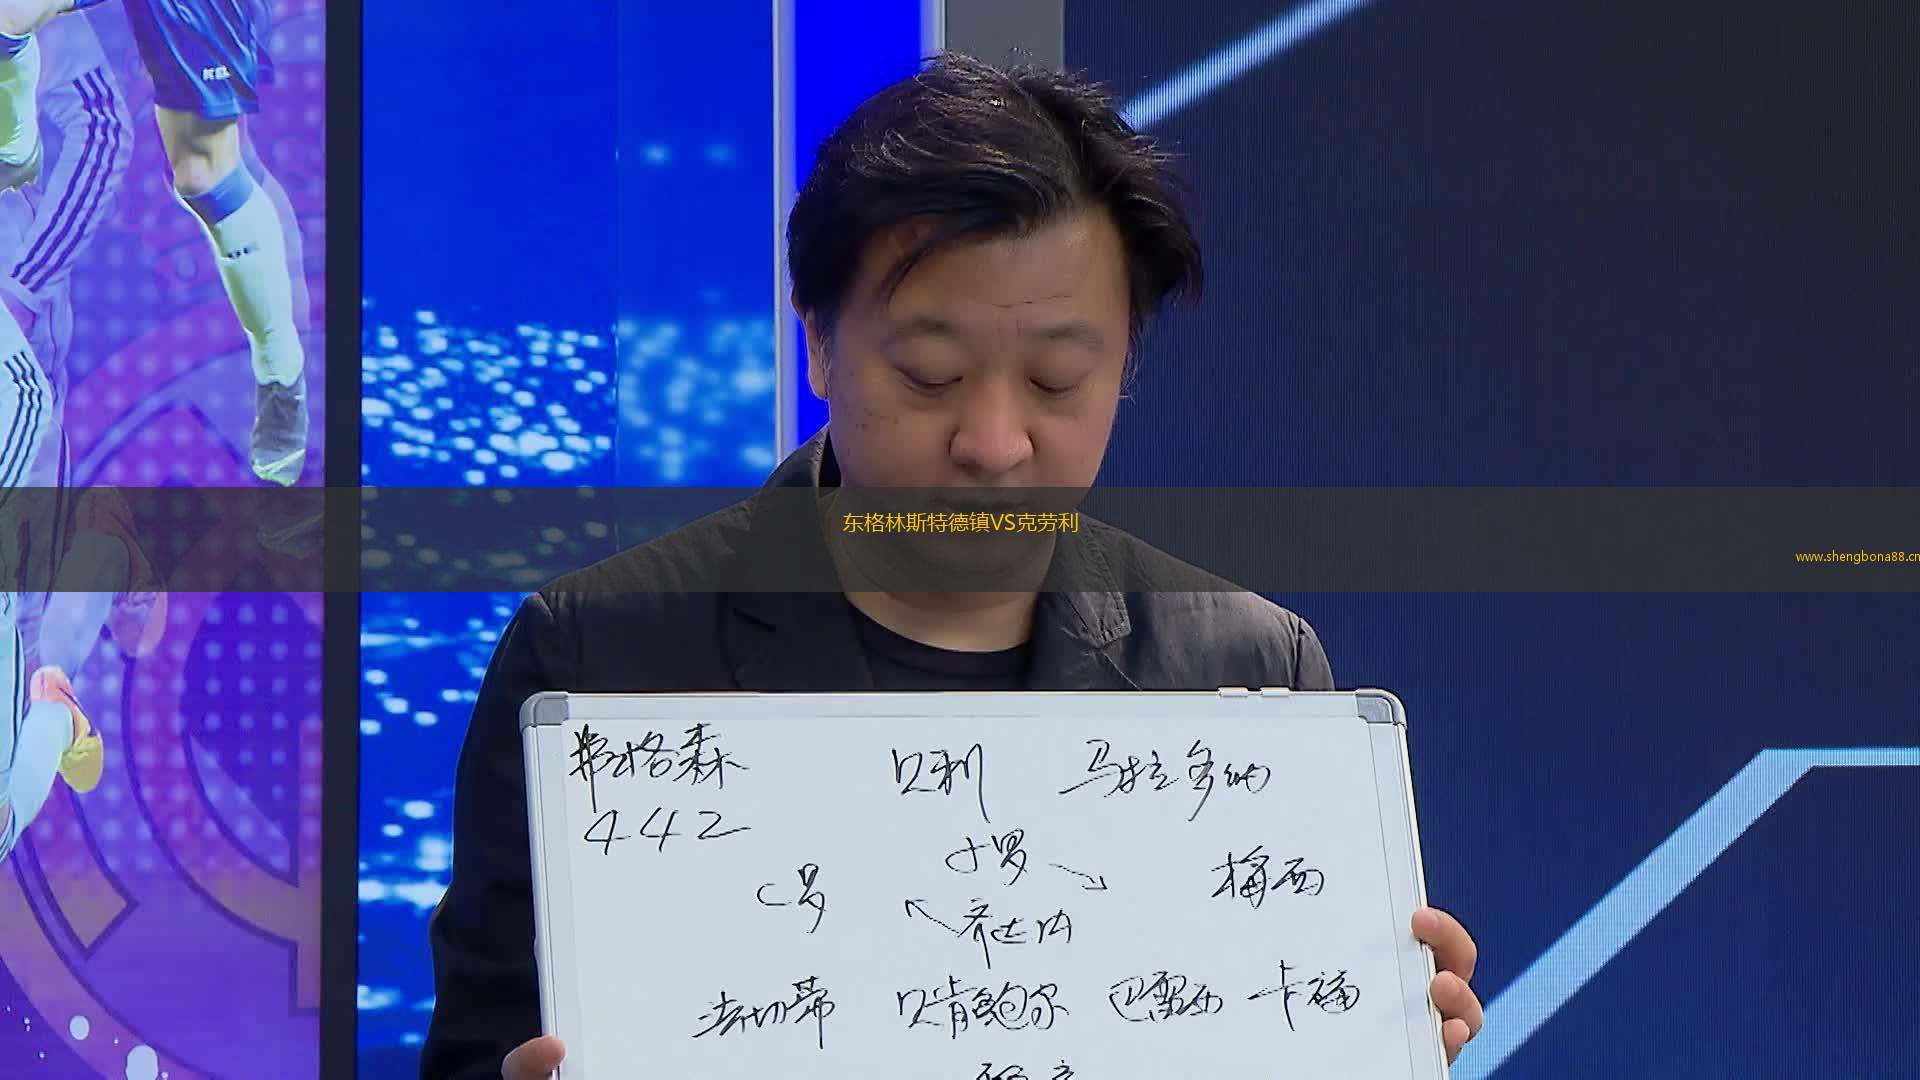 东格林斯特德镇VS克劳利
www.shengbona88.cn
弗格森 贝利 马拉多纳
442
小罗
C罗 梅西
齐达内
法切蒂 贝肯鲍尔 巴雷西 卡福